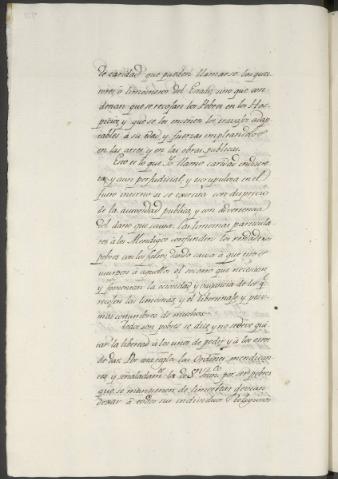 de caridad que pueden llamarse los que
o limosneros del Erario, sino que con
denan que se recojan los Pobres en los Hos
picios, y que se les enseñen los trabajos adap
tables á su edad y fuerzas empleandolos
en las artes y en las obras públicas.
Esto es lo que Yo llamo caridad
y aun perjudicial, y escrupulosa en el
fuero interno si se exercita con desprecio
de la autoridad publica, y con advertencia
del daño que causa. Las limosnas particula
res á los Mendigos confunden los verdaderos
pobres con los falsos, dando causa á que no se
á aquellos el socorro que necesitan
y fomentan la ociosidad y vagancia de los q.e
recojen las limosnas, y el libertinaje y pesi
mas costumbres de muchos.
Todos son pobres se dice y no se debe qui
tar la libertad á los unos de pedir y á los otros
de dar. Por exemplo las Ordenes mendican
tes y señaladam.te la de S.n Fran.co por ser pobres
que se mantienen de limosnas
á todos sus individuos Religiosos